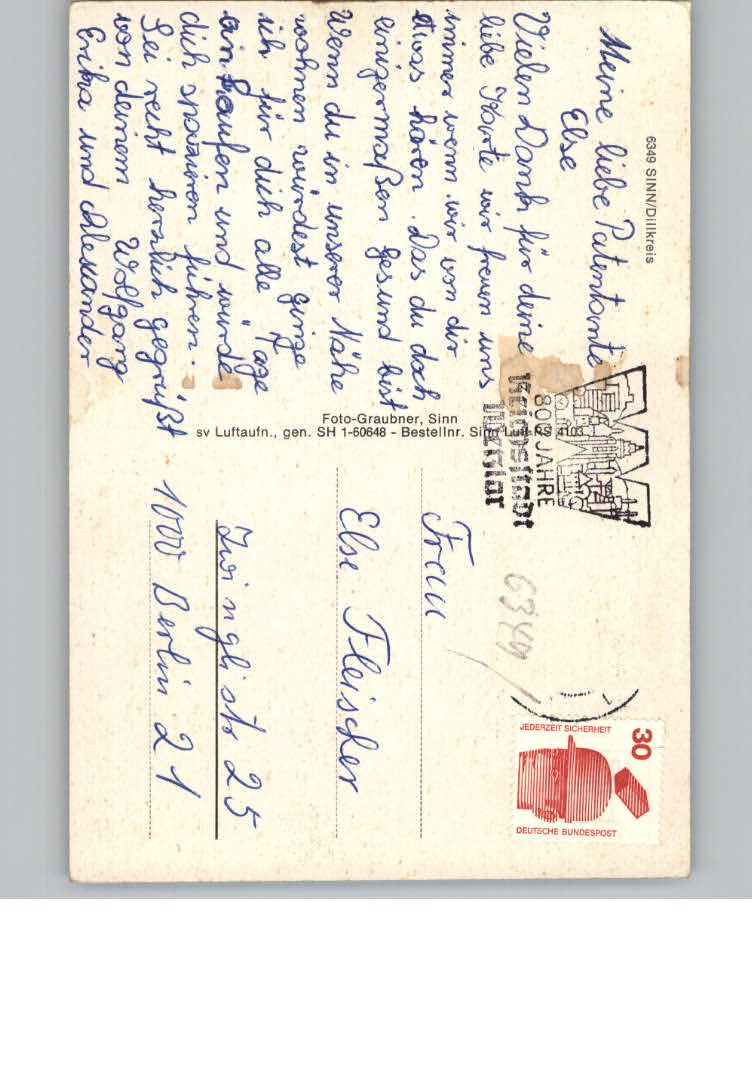 6349 SINN/Dillkreis
Meine liebe Patentante
Else
Vielen Dank für deine
liebe Karte wir freuen uns
immer wenn wir von dir
etwas hören. Das du doch
einigermaßen gesund bist
Wenn du in unserer Nähe
wohnen würdest ginge
ich für dich alle Tage
einkaufen und würde
dich spazieren führen.
Sei recht herzlich gegrüßt
von deinem Wolfgang
Erika und Alexander
Foto-Graubner, Sinn
sv Luftaufn., gen. SH 1-60648 - Bestellnr. Sinn 4103
800 JAHRE
Reichsstadt
Wetzlar
6349
30
JEDERZEIT SICHERHEIT
DEUTSCHE BUNDESPOST
Frau
Else Fleischer
Zwinglistr 25
1000 Berlin 21